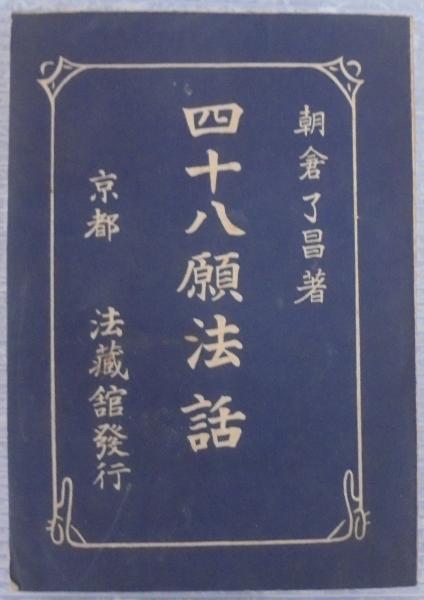 朝倉了昌著
四十八願法話
京都 法藏舘發行